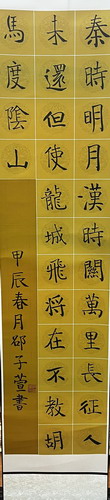 秦時明月漢時關萬里長征人
未還但使龍城飛将在不教胡
馬度陰山
甲辰春月邵子萱書